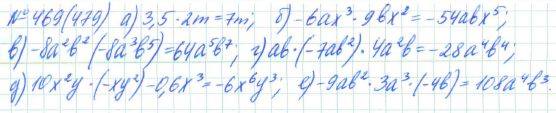 № 469(479) а) 3,5·2m=7m; б) -6ax³·9bx²=-54abx⁵;
в) -8a²b²(-8a³b⁵)=64a⁵b⁷; г) ab·(-7ab²)·4a²b=-28a⁴b⁴;
д) 10x²y·(-xy²)-0,6x³=-6x⁶y³; е) -9ab²·3a³·(-4b)=108a⁴b³.